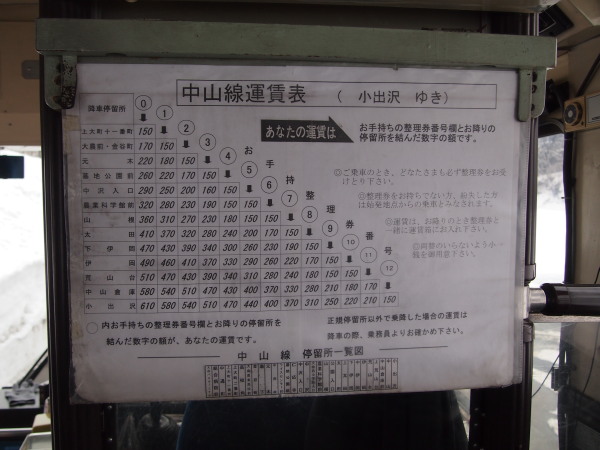 中山線運賃表 （ 小出沢 ゆき）
あなたの運賃は
お手持ちの整理券番号欄とお降りの
停留所を結んだ数字の額です。
降車停留所 0 1 2 3 4 5 6 7 8 9 10 11 12
お手持整理券番号
上大町十一番町 150
大島前・金谷町 170 150
元木 220 180 150
墓地公園前 260 220 170 150
中沢入口 290 250 200 160 150
農業科学館前 320 280 230 190 150 150
山根 360 310 270 230 180 150 150
太田 410 370 320 290 240 200 190 150
下伊岡 470 430 390 340 300 260 230 190 150
伊岡 490 460 410 370 330 290 260 220 170 150
荒山台 510 470 430 390 340 310 280 240 180 150 150
中山倉庫 580 540 510 470 430 400 370 340 280 220 180 150
小出沢 610 580 540 510 470 440 400 370 310 250 220 210 150
◎ご乗車のとき、どなたさまも必ず整理券をお受
けとり下さい。
◎整理券をお持ちでない方、紛失した方
は始発地点からの乗車とみなされます。
◎運賃は、お降りのとき整理券と
一緒に運賃箱にお入れ下さい。
◎両替のいらないよう小
銭を御用意下さい。
○内お手持ちの整理券番号欄とお降りの停留所を
結んだ数字の額が、あなたの運賃です。
正規停留所以外で乗降した場合の運賃は
降車の際、乗務員よりお確かめ下さい。
中山線 停留所一覧図